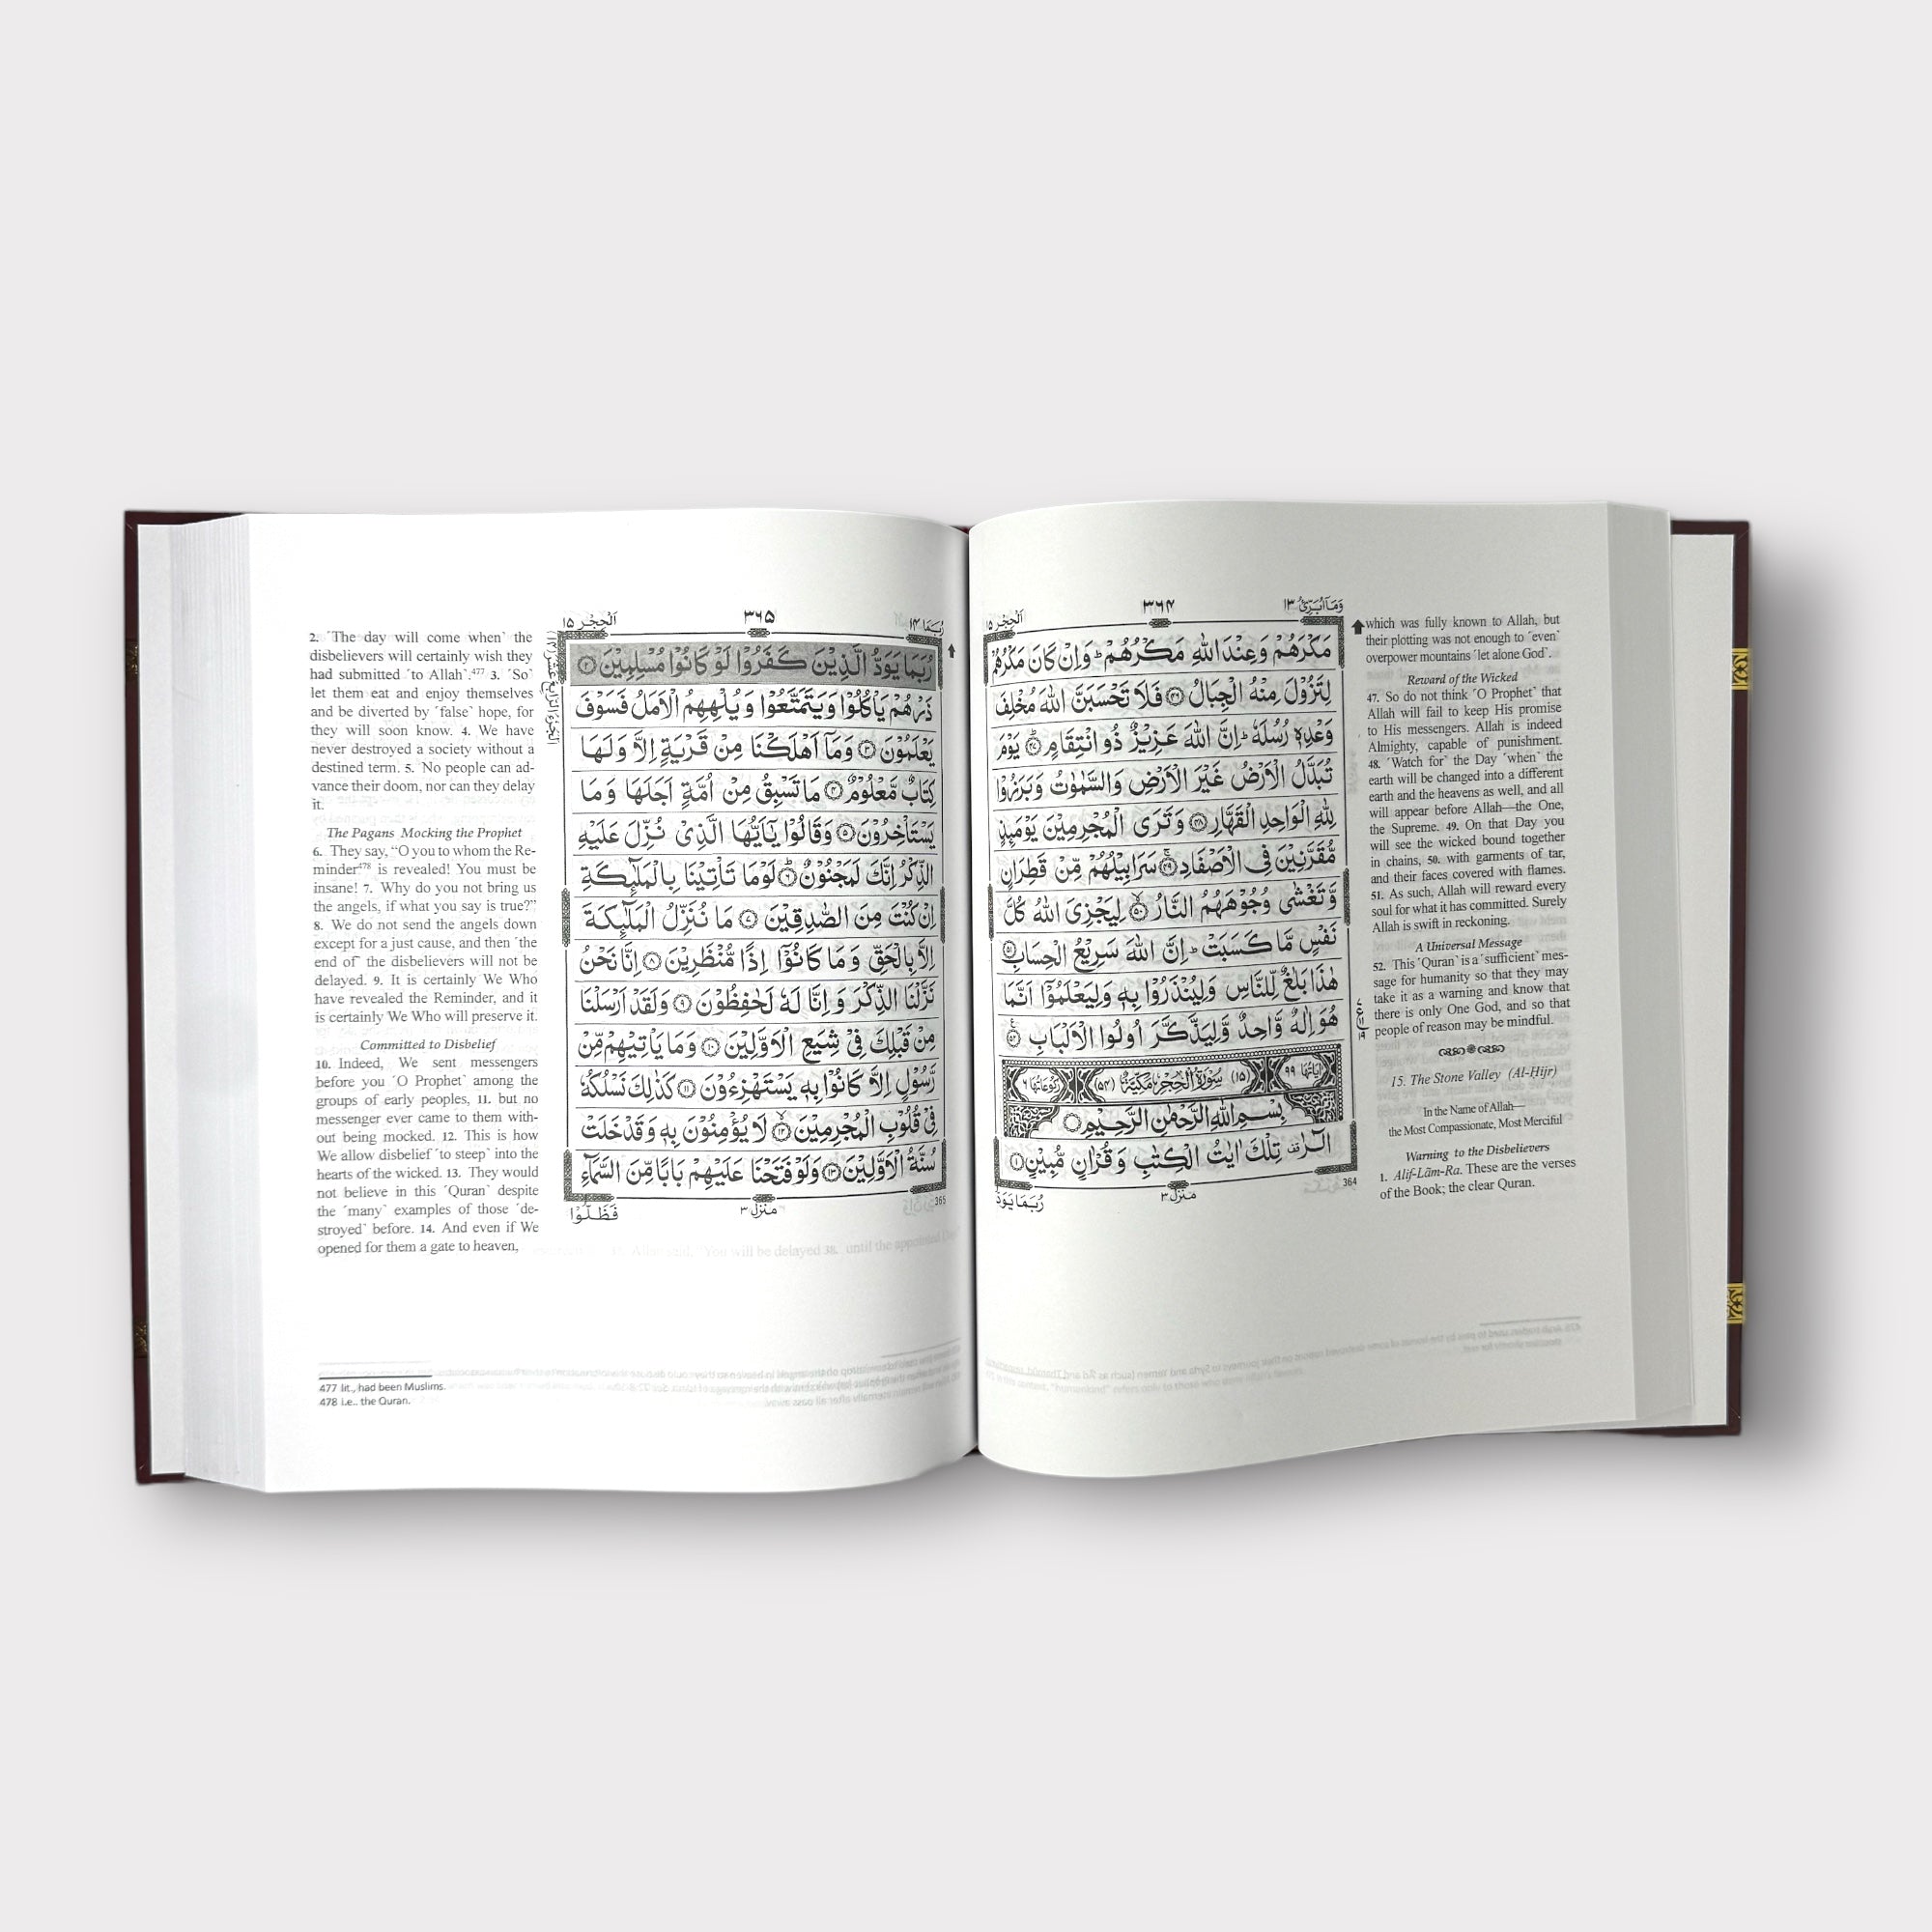 وَمَآ اُبَرِّئُ ۱۳
۳۶۴
اَلْحِجْر ۱۵
مَكْرَهُمْ وَعِنْدَ اللّٰهِ مَكْرُهُمْ ؕ وَاِنْ كَانَ مَكْرُهُمْ
لِتَزُوْلَ مِنْهُ الْجِبَالُ ﴿۴۶﴾ فَلَا تَحْسَبَنَّ اللّٰهَ مُخْلِفَ
وَعْدِهٖ رُسُلَهٗ ؕ اِنَّ اللّٰهَ عَزِيْزٌ ذُو انْتِقَامٍ ﴿۴۷﴾ يَوْمَ
تُبَدَّلُ الْاَرْضُ غَيْرَ الْاَرْضِ وَالسَّمٰوٰتُ وَبَرَزُوْا
لِلّٰهِ الْوَاحِدِ الْقَهَّارِ ﴿۴۸﴾ وَتَرَى الْمُجْرِمِيْنَ يَوْمَئِذٍ
مُّقَرَّنِيْنَ فِى الْاَصْفَادِ ﴿۴۹﴾ سَرَابِيْلُهُمْ مِّنْ قَطِرَانٍ
وَّتَغْشٰى وُجُوْهَهُمُ النَّارُ ﴿۵۰﴾ لِيَجْزِىَ اللّٰهُ كُلَّ
نَفْسٍ مَّا كَسَبَتْ ؕ اِنَّ اللّٰهَ سَرِيْعُ الْحِسَابِ ﴿۵۱﴾
هٰذَا بَلٰغٌ لِّلنَّاسِ وَلِيُنْذَرُوْا بِهٖ وَلِيَعْلَمُوْٓا اَنَّمَا
هُوَ اِلٰهٌ وَّاحِدٌ وَّلِيَذَّكَّرَ اُولُوا الْاَلْبَابِ ﴿۵۲﴾
اٰيَاتُهَا ۹۹ (۱۵) سُوْرَةُ الْحِجْرِ مَكِّيَّةٌ (۵۴) رُكُوْعَاتُهَا ۶
بِسْمِ اللّٰهِ الرَّحْمٰنِ الرَّحِيْمِ
الٓرٰ تِلْكَ اٰيٰتُ الْكِتٰبِ وَقُرْاٰنٍ مُّبِيْنٍ ﴿۱﴾
منزل ۳
364
رُبَمَا يَوَدُّ
which was fully known to Allah, but
their plotting was not enough to ˹even˺
overpower mountains ˹let alone God˺.
Reward of the Wicked
47. So do not think ˹O Prophet˺ that
Allah will fail to keep His promise
to His messengers. Allah is indeed
Almighty, capable of punishment.
48. ˹Watch for˺ the Day ˹when˺ the
earth will be changed into a different
earth and the heavens as well, and all
will appear before Allah—the One,
the Supreme. 49. On that Day you
will see the wicked bound together
in chains, 50. with garments of tar,
and their faces covered with flames.
51. As such, Allah will reward every
soul for what it has committed. Surely
Allah is swift in reckoning.
A Universal Message
52. This ˹Quran˺ is a ˹sufficient˺ mes-
sage for humanity so that they may
take it as a warning and know that
there is only One God, and so that
people of reason may be mindful.
15. The Stone Valley (Al-Ḥijr)
In the Name of Allah—
the Most Compassionate, Most Merciful
Warning to the Disbelievers
1. Alif-Lãm-Ra. These are the verses
of the Book; the clear Quran.
رُبَمَا ۱۴
۳۶۵
اَلْحِجْر ۱۵
رُبَمَا يَوَدُّ الَّذِيْنَ كَفَرُوْا لَوْ كَانُوْا مُسْلِمِيْنَ ﴿۲﴾
ذَرْهُمْ يَاْكُلُوْا وَيَتَمَتَّعُوْا وَيُلْهِهِمُ الْاَمَلُ فَسَوْفَ
يَعْلَمُوْنَ ﴿۳﴾ وَمَآ اَهْلَكْنَا مِنْ قَرْيَةٍ اِلَّا وَلَهَا
كِتَابٌ مَّعْلُوْمٌ ﴿۴﴾ مَا تَسْبِقُ مِنْ اُمَّةٍ اَجَلَهَا وَمَا
يَسْتَاْخِرُوْنَ ﴿۵﴾ وَقَالُوْا يٰٓاَيُّهَا الَّذِىْ نُزِّلَ عَلَيْهِ
الذِّكْرُ اِنَّكَ لَمَجْنُوْنٌ ﴿۶﴾ لَوْ مَا تَاْتِيْنَا بِالْمَلٰٓئِكَةِ
اِنْ كُنْتَ مِنَ الصّٰدِقِيْنَ ﴿۷﴾ مَا نُنَزِّلُ الْمَلٰٓئِكَةَ
اِلَّا بِالْحَقِّ وَمَا كَانُوْٓا اِذًا مُّنْظَرِيْنَ ﴿۸﴾ اِنَّا نَحْنُ
نَزَّلْنَا الذِّكْرَ وَاِنَّا لَهٗ لَحٰفِظُوْنَ ﴿۹﴾ وَلَقَدْ اَرْسَلْنَا
مِنْ قَبْلِكَ فِىْ شِيَعِ الْاَوَّلِيْنَ ﴿۱۰﴾ وَمَا يَاْتِيْهِمْ مِّنْ
رَّسُوْلٍ اِلَّا كَانُوْا بِهٖ يَسْتَهْزِءُوْنَ ﴿۱۱﴾ كَذٰلِكَ نَسْلُكُهٗ
فِىْ قُلُوْبِ الْمُجْرِمِيْنَ ﴿۱۲﴾ لَا يُؤْمِنُوْنَ بِهٖ وَقَدْ خَلَتْ
سُنَّةُ الْاَوَّلِيْنَ ﴿۱۳﴾ وَلَوْ فَتَحْنَا عَلَيْهِمْ بَابًا مِّنَ السَّمَآءِ
منزل ۳
365
فَظَلُّوْا
اَلْجُزْءُ الرَّابِعُ عَشَرَ (۱۴)
2. ˹The day will come when˺ the
disbelievers will certainly wish they
had submitted ˹to Allah˺.477 3. ˹So˺
let them eat and enjoy themselves
and be diverted by ˹false˺ hope, for
they will soon know. 4. We have
never destroyed a society without a
destined term. 5. No people can ad-
vance their doom, nor can they delay
it.
The Pagans Mocking the Prophet
6. They say, “O you to whom the Re-
minder478 is revealed! You must be
insane! 7. Why do you not bring us
the angels, if what you say is true?”
8. We do not send the angels down
except for a just cause, and then ˹the
end of˺ the disbelievers will not be
delayed. 9. It is certainly We Who
have revealed the Reminder, and it
is certainly We Who will preserve it.
Committed to Disbelief
10. Indeed, We sent messengers
before you ˹O Prophet˺ among the
groups of early peoples, 11. but no
messenger ever came to them with-
out being mocked. 12. This is how
We allow disbelief ˹to steep˺ into the
hearts of the wicked. 13. They would
not believe in this ˹Quran˺ despite
the ˹many˺ examples of those ˹de-
stroyed˺ before. 14. And even if We
opened for them a gate to heaven,
477 lit., had been Muslims.
478 i.e.. the Quran.